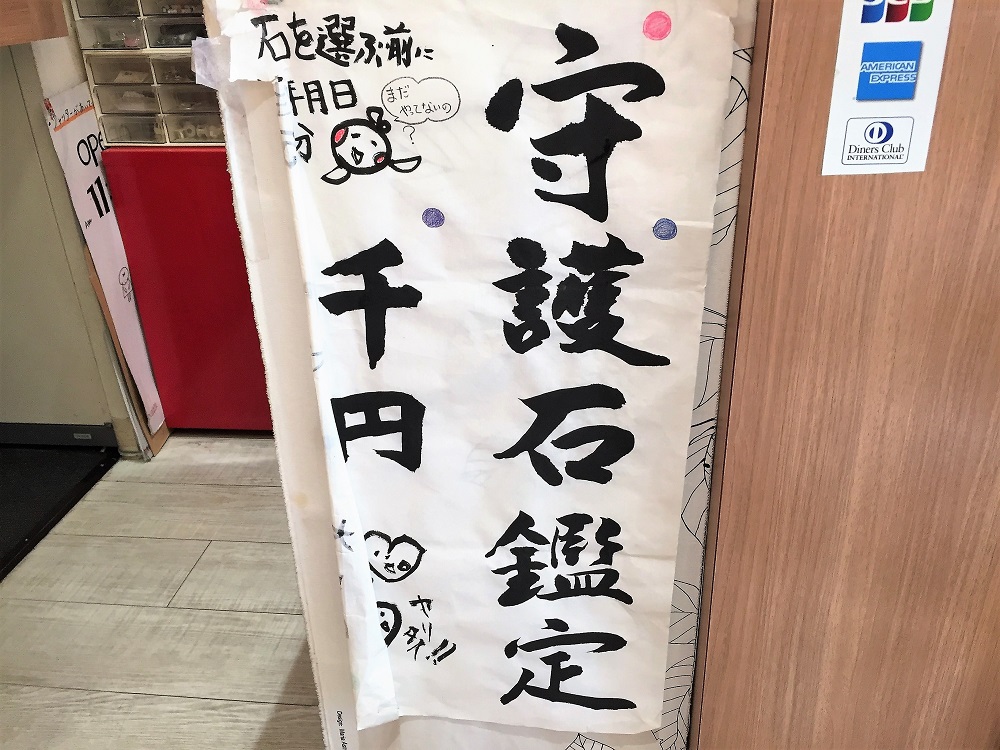 守護石鑑定
石を選ぶ前に
年月日
分
まだ
やってないの
?
千円
ヤリ
タイ!!
OPE
11
JCB
AMERICAN
EXPRESS
Diners Club
INTERNATIONAL